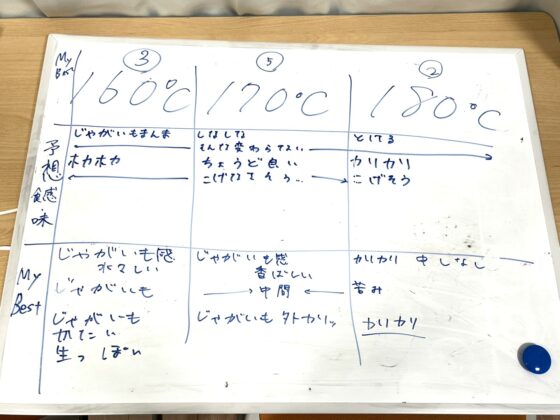 My Best ③ 160℃ ⑤ 170℃ ② 180℃
予想 食感 味
じゃがいもまんま しなしな
そんな変わらない
ホカホカ ちょうど良い カリカリ
こげてそう
My Best
じゃがいも感 じゃがいも感 カリカリ 中しなし
香ばしい
じゃがいも 中間 苦み
じゃがいも じゃがいも 外カリッ カリカリ
生っぽい